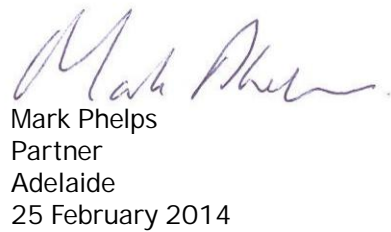 Mark Phelps
Mark Phelps
Partner
Adelaide
25 February 2014